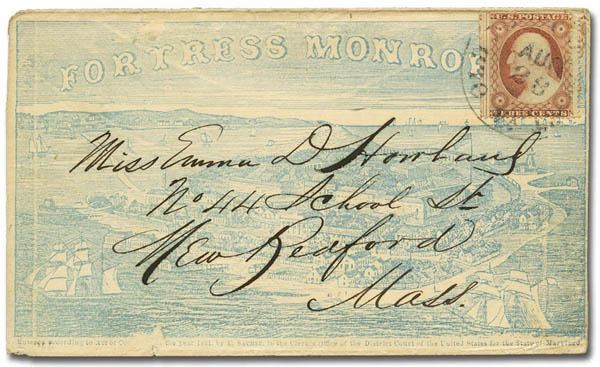 FORTRESS MONROE
U.S. POSTAGE
THREE CENTS
AUG
26
Miss Emma D Howland
No 44 School St
New Bedford
Mass.
Entered according to Act of Co the year 1861, by E. SACHSE, in the Clerk's Office of the District Court of the United States for the State of Maryland.